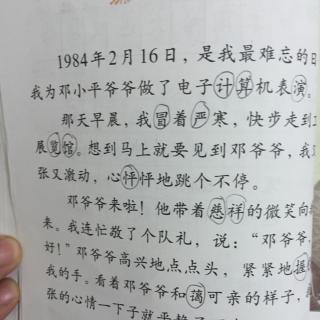 1984年2月16日，是我最难忘的日
我为邓小平爷爷做了电子计算机表演。
那天早晨，我冒着严寒，快步走到工
展览馆。想到马上就要见到邓爷爷，我又
张又激动，心怦怦地跳个不停。
邓爷爷来啦！他带着慈祥的微笑向
来。我连忙敬了个队礼，说：“邓爷爷，
好！”邓爷爷高兴地点点头，紧紧地握
我的手。看着邓爷爷和蔼可亲的样子，
张的心情一下子就平静了